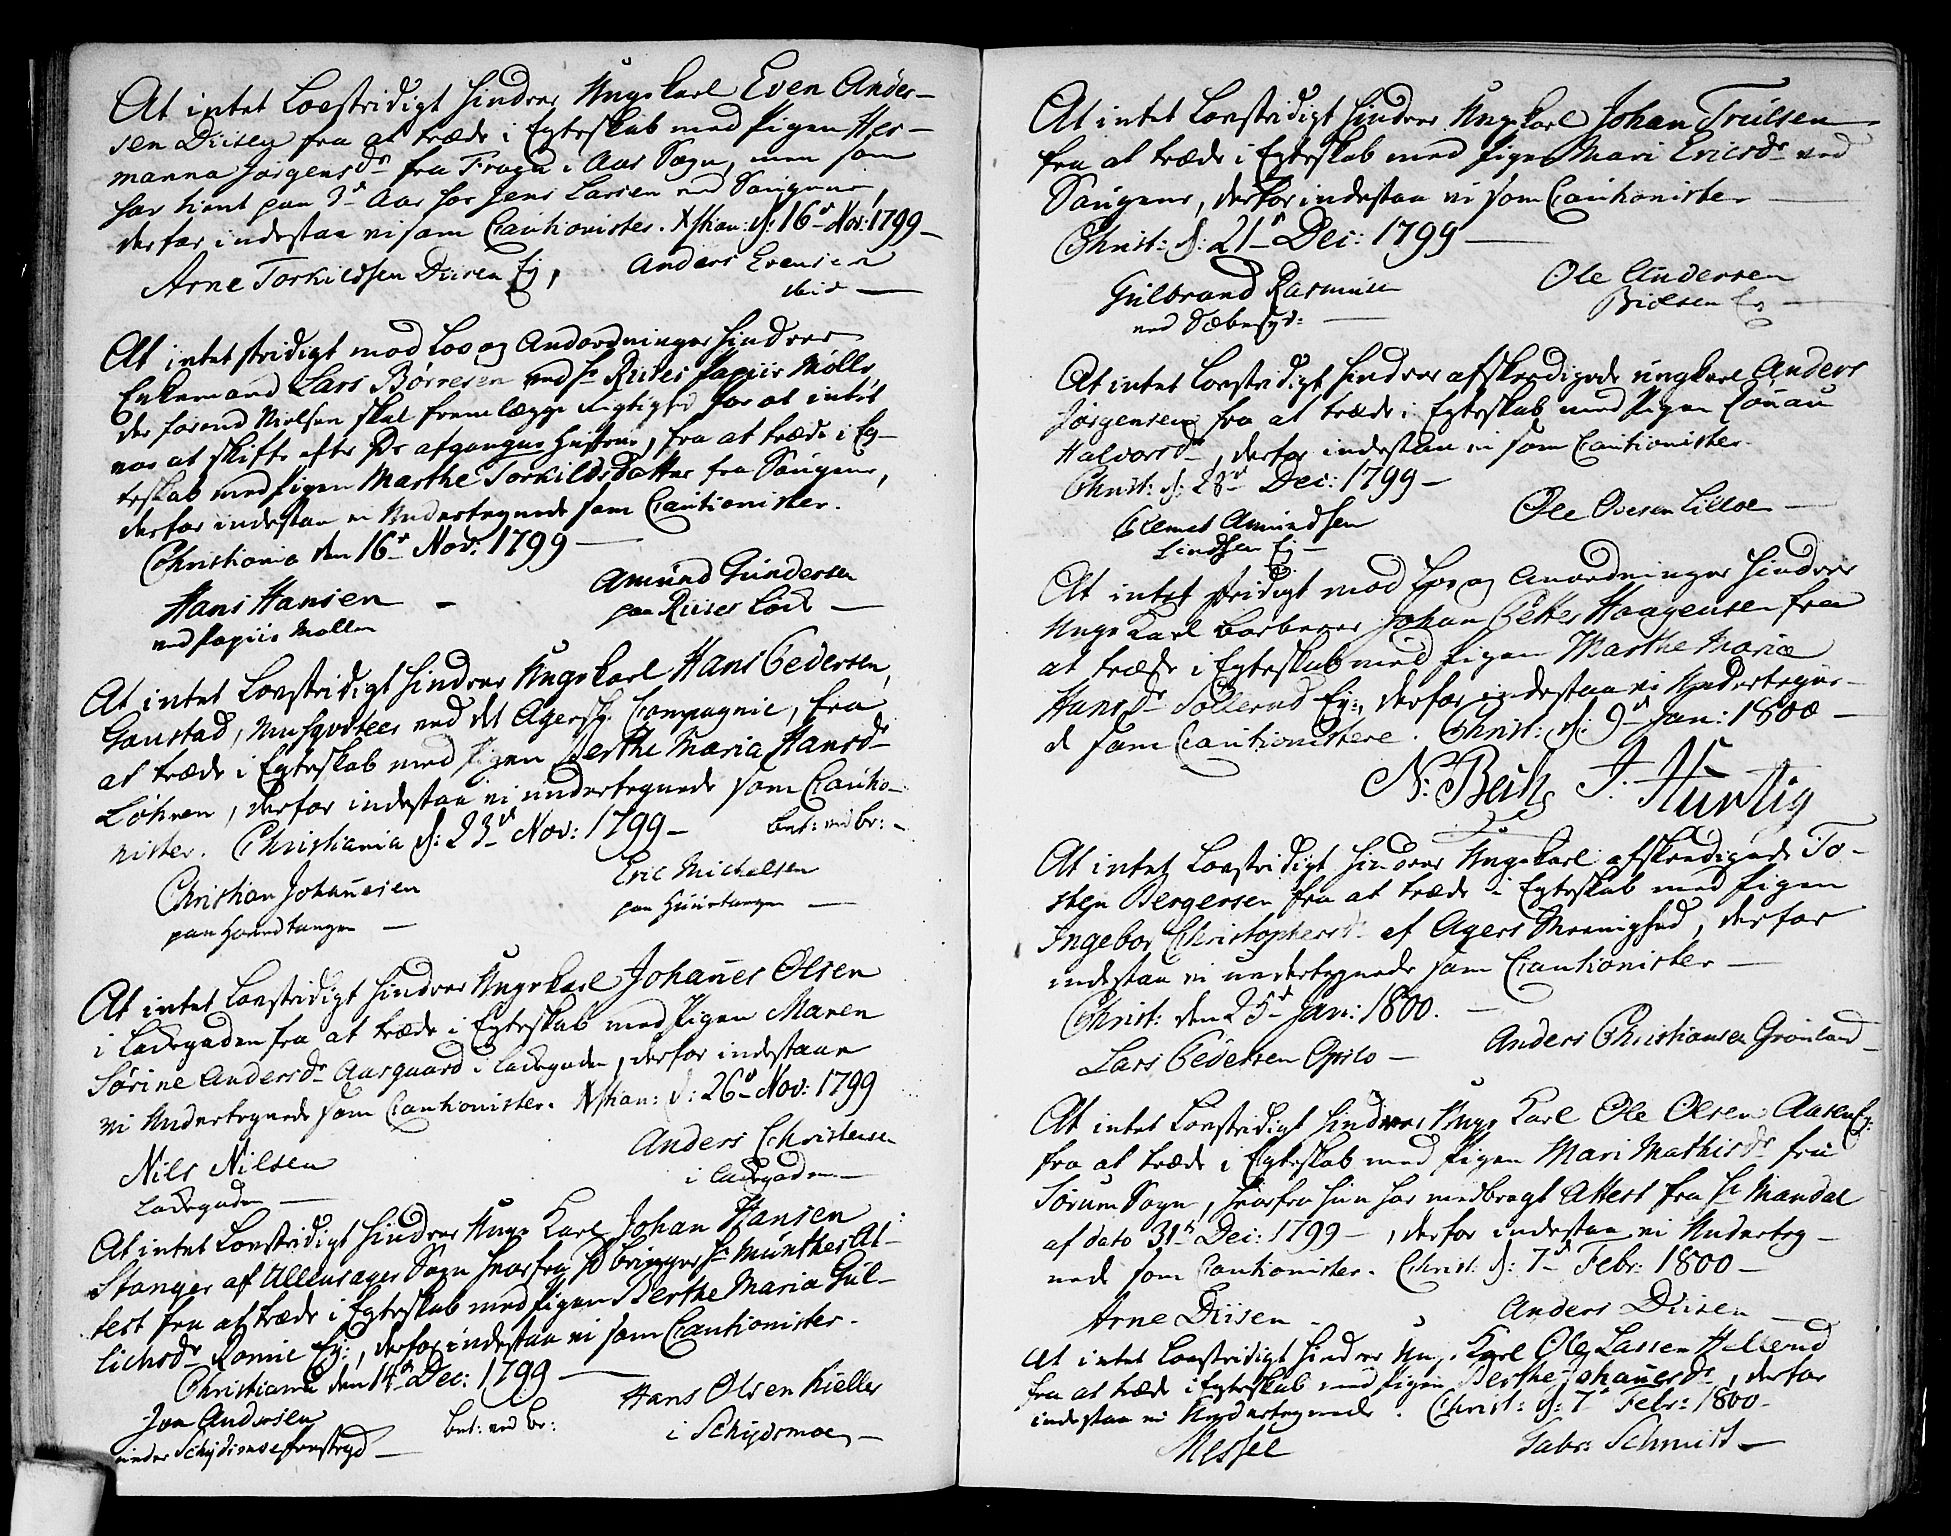 At intet Lovstridigt hindrer Ungekarl Even Ander-
sen Diisen fra at træde i Egteskab med Pigen Her-
manna Jørgensdr fra Frogn i Aas Sogn, men som
har tient paa 3de Aar hos Jens Larsen ved Saugene,
derfor indestaa vi som Cautionister. Xstian: d: 16de Nov: 1799 –
Arne Torkildsen Diisen Ej, Anders Evensen
ibid –
At intet stridigt mod Lov og Andordninger hindrer
Enkemand Lars Børresen ved Hr Riises Papiir Mølle,
der forend Vielsen skal fremlægge Rigtighed for at intet
var at skifte efter Ds afgangne Hustrue, fra at træde i Eg-
teskab med Pigen Marthe Torkildsdatter fra Saugene,
derfor indestaa vi Undertegnede som Cautionister.
Christiania den 16de Nov: 1799 –
Hans Hansen – Amund Gundersen
ved Papiir Møllen paa Riises Løck –
At intet Lovstridigt hindrer Ungekarl Hans Pedersen
Gaustad, Musqveteer ved det Agersh: Compagnie, fra
at træde i Egteskab med Pigen Berthe Maria Hansdr
Løkren, derfor indestaa vi undertegnede som Cautio-
nister. Christiania d: 23de Nov: 1799 – bet: ved br: –
Christian Johanesen Eric Michelsen
paa Hovedtangen – paa Huustangen –
At intet Lovstridigt hindrer Ungekarl Johanes Olsen
i Ladegaden fra at træde i Egteskab med Pigen Maren
Sørine Andersdr Aasgaard i Ladegaden, derfor indestaae
vi Undertegnede som Cautionister. Xstian: d: 26de Nov: 1799
Nils Nilsen Anders Christensen
Ladegaden – i Ladegaden –
At intet Lovstridigt hindrer Unge Karl Johan Hansen
Stanger af Ullensager Sogn hvorfra Hd bringer Hr Munthes At-
test fra at træde i Egteskab med Pigen Berthe Maria Gul-
lichsdr Romie Ej:, derfor indestaa vi som Cautionister.
Christiania den 14de Dec: 1799 –
Jon Andersen bet: ved br: Hans Olsen Kieller
under i Schydsmoe –
At intet Lovstridigt hindrer Ungkarl Johan Trulsen
fra at træde i Egteskab med Pigen Mari Ericsdr ved
Saugene, derfor indestaa vi som Cautionister –
Christ: d: 21de Dec: 1799 –
Gulbrand Rasmusen Ole Andersen
ved Sæbesyd: – Biølsen Ej –
At intet Lovstridigt hindrer afskedigede ungkarl Anders
Jørgensen fra at træde i Egteskab med Pigen
Halvorsdr, derfor indestaa vi som Cautionister.
Christ: d: 28de Dec: 1799 –
Clemet Amundsen Ole Ovesen Lilloe –
Ej –
At intet stridigt mod Lov og Anordninger hindrer
Unge Karl Barberer Johan Petter Haagensen fra
at træde i Egteskab med Pigen Marthe Maria
Hansdr Sollerud Ej:, derfor indestaa vi Undertegne-
d som Cautionistere. Christ: d: 9de Jan: 1800 –
N: Bech J. Hurtig
At intet Lovstridigt hindrer Ungekarl afskedigede To-
sten Bergersen fra at træde i Egteskab med Pigen
Ingebor Christophersdr af Agers Menighed, derfor
indestaa vi undertegnede som Cautionister –
Christ: den 25de Jan: 1800. –
Lars Pedersen Opslo – Anders Christiansen Grønland –
At intet Lovstridigt hindrer Unge Karl Ole Olsen Aasen Ej:
fra at træde i Egteskab med Pigen Mari Mathisdr fra
Sørum Sogn, hvorfra hun har medbragt Attest fra Hr Mandal
af dato 31te Dec: 1799 –, derfor indestaa vi Underteg-
nede som Cautionister. Christ: d: 7de Febr: 1800 –
Arne Diisen – Anders Diisen –
At intet Lovstridigt hindrer Unge Karl Ole Larsen Hellerud
fra at træde i Egteskab med Pigen Berthe Johanesdr, derfor
indestaa vi Undertegnede. Christ: d: 7de Febr: 1800 –
Messel Gabr: Schmidt –